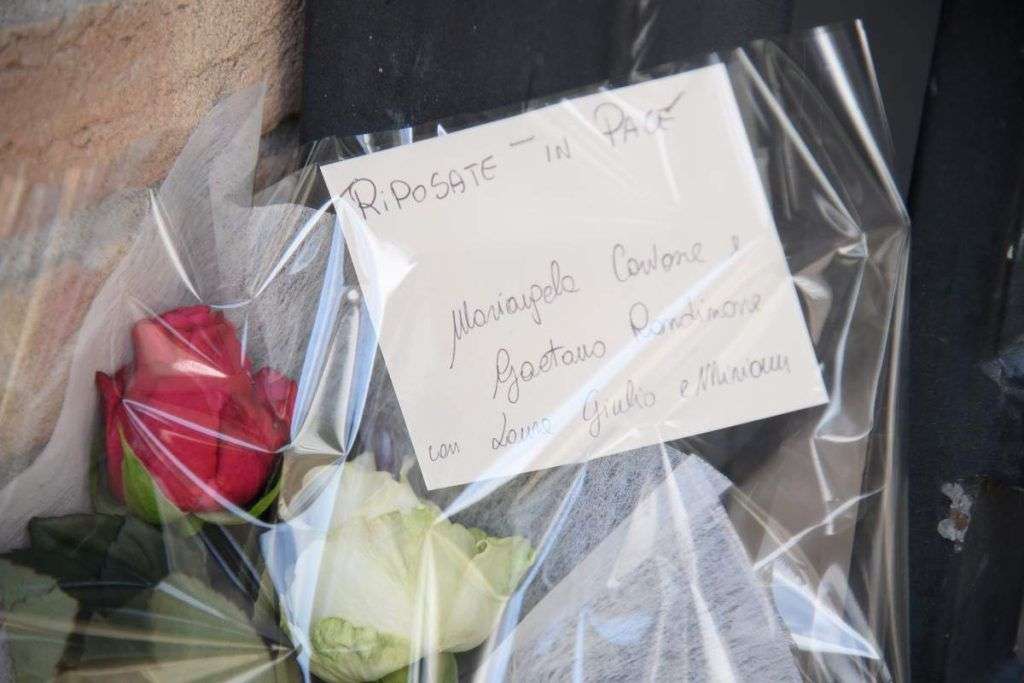 RIPOSATE - IN PACE
Mariangela Cardone e
Gaetano Randimone
con Laura Giulio e Miriam